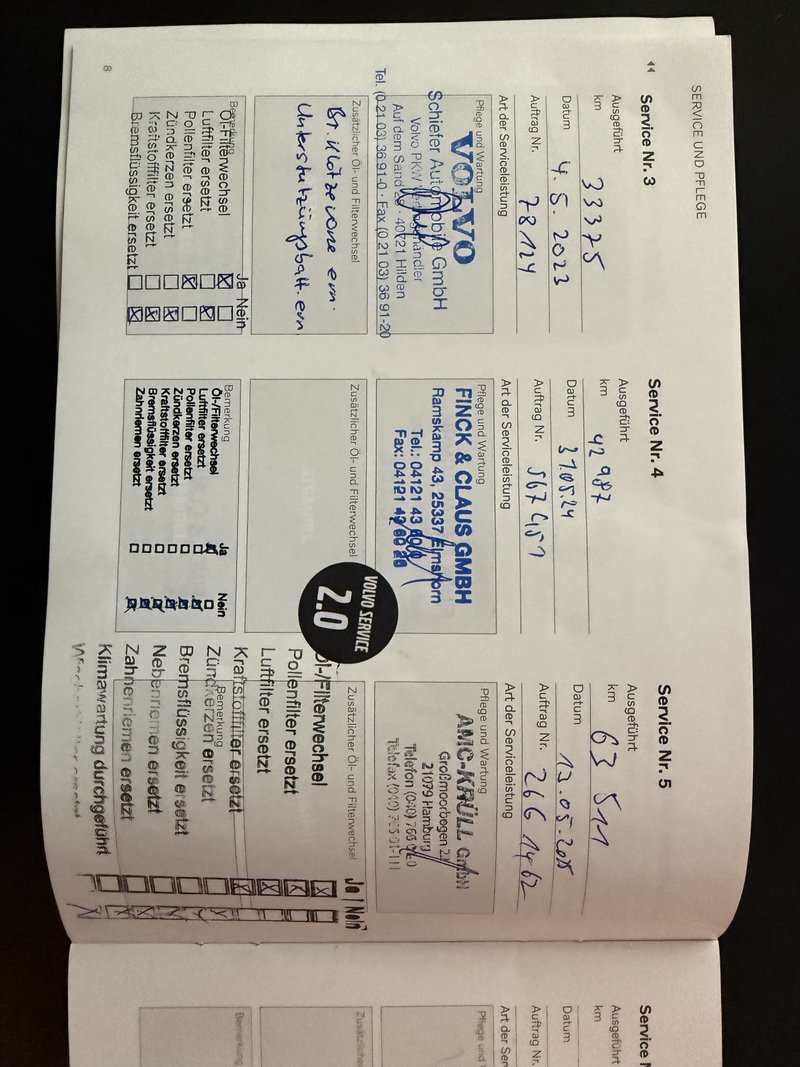 SERVICE UND PFLEGE
Service Nr. 3
Ausgeführt
km 33375
Datum 4.5.2023
Auftrag Nr. 78124
Art der Serviceleistung
Pflege und Wartung
VOLVO
Schiefer Automobile GmbH
Volvo PKW
Auf dem Sand 40721 Hilden
Tel. (0 21 03) 36 91-0 · Fax (0 21 03) 36 91-20
Zusätzlicher Öl- und Filterwechsel
Br. Klötze vorne ern.
Unterstützungsbatt. ern
Bemerkung
Ja Nein
Öl-Filterwechsel
Luftfilter ersetzt
Pollenfilter ersetzt
Zündkerzen ersetzt
Kraftstofffilter ersetzt
Bremsflüssigkeit ersetzt
8
Service Nr. 4
Ausgeführt
km 42987
Datum 31.05.24
Auftrag Nr.
Art der Serviceleistung
Pflege und Wartung
FINCK & CLAUS GMBH
Ramskamp 43, 25337 Elmshorn
Tel.: 04121 43
Fax: 04121
Zusätzlicher Öl- und Filterwechsel
Bemerkung
Ja Nein
Öl-/Filterwechsel
Luftfilter ersetzt
Pollenfilter ersetzt
Zündkerzen ersetzt
Kraftstofffilter ersetzt
Bremsflüssigkeit ersetzt
Zahnriemen ersetzt
VOLVO SERVICE
2.0
Service Nr. 5
Ausgeführt
km 63 511
Datum
Auftrag Nr. 266 1462
Art der Serviceleistung
Pflege und Wartung
AMC-KRÜLL GmbH
Großmoorbogen
21079 Hamburg
Telefon (040)
Telefax (040)
Zusätzlicher Öl- und Filterwechsel
Ja | Nein
Öl-/Filterwechsel
Pollenfilter ersetzt
Luftfilter ersetzt
Kraftstofffilter ersetzt
Bemerkung
Zündkerzen ersetzt
Bremsflüssigkeit ersetzt
Nebenriemen ersetzt
Zahnenriemen ersetzt
Klimawartung durchgeführt
Service
Ausgeführt
km
Datum
Auftrag Nr.
Art der
Pflege und
Bemerkung